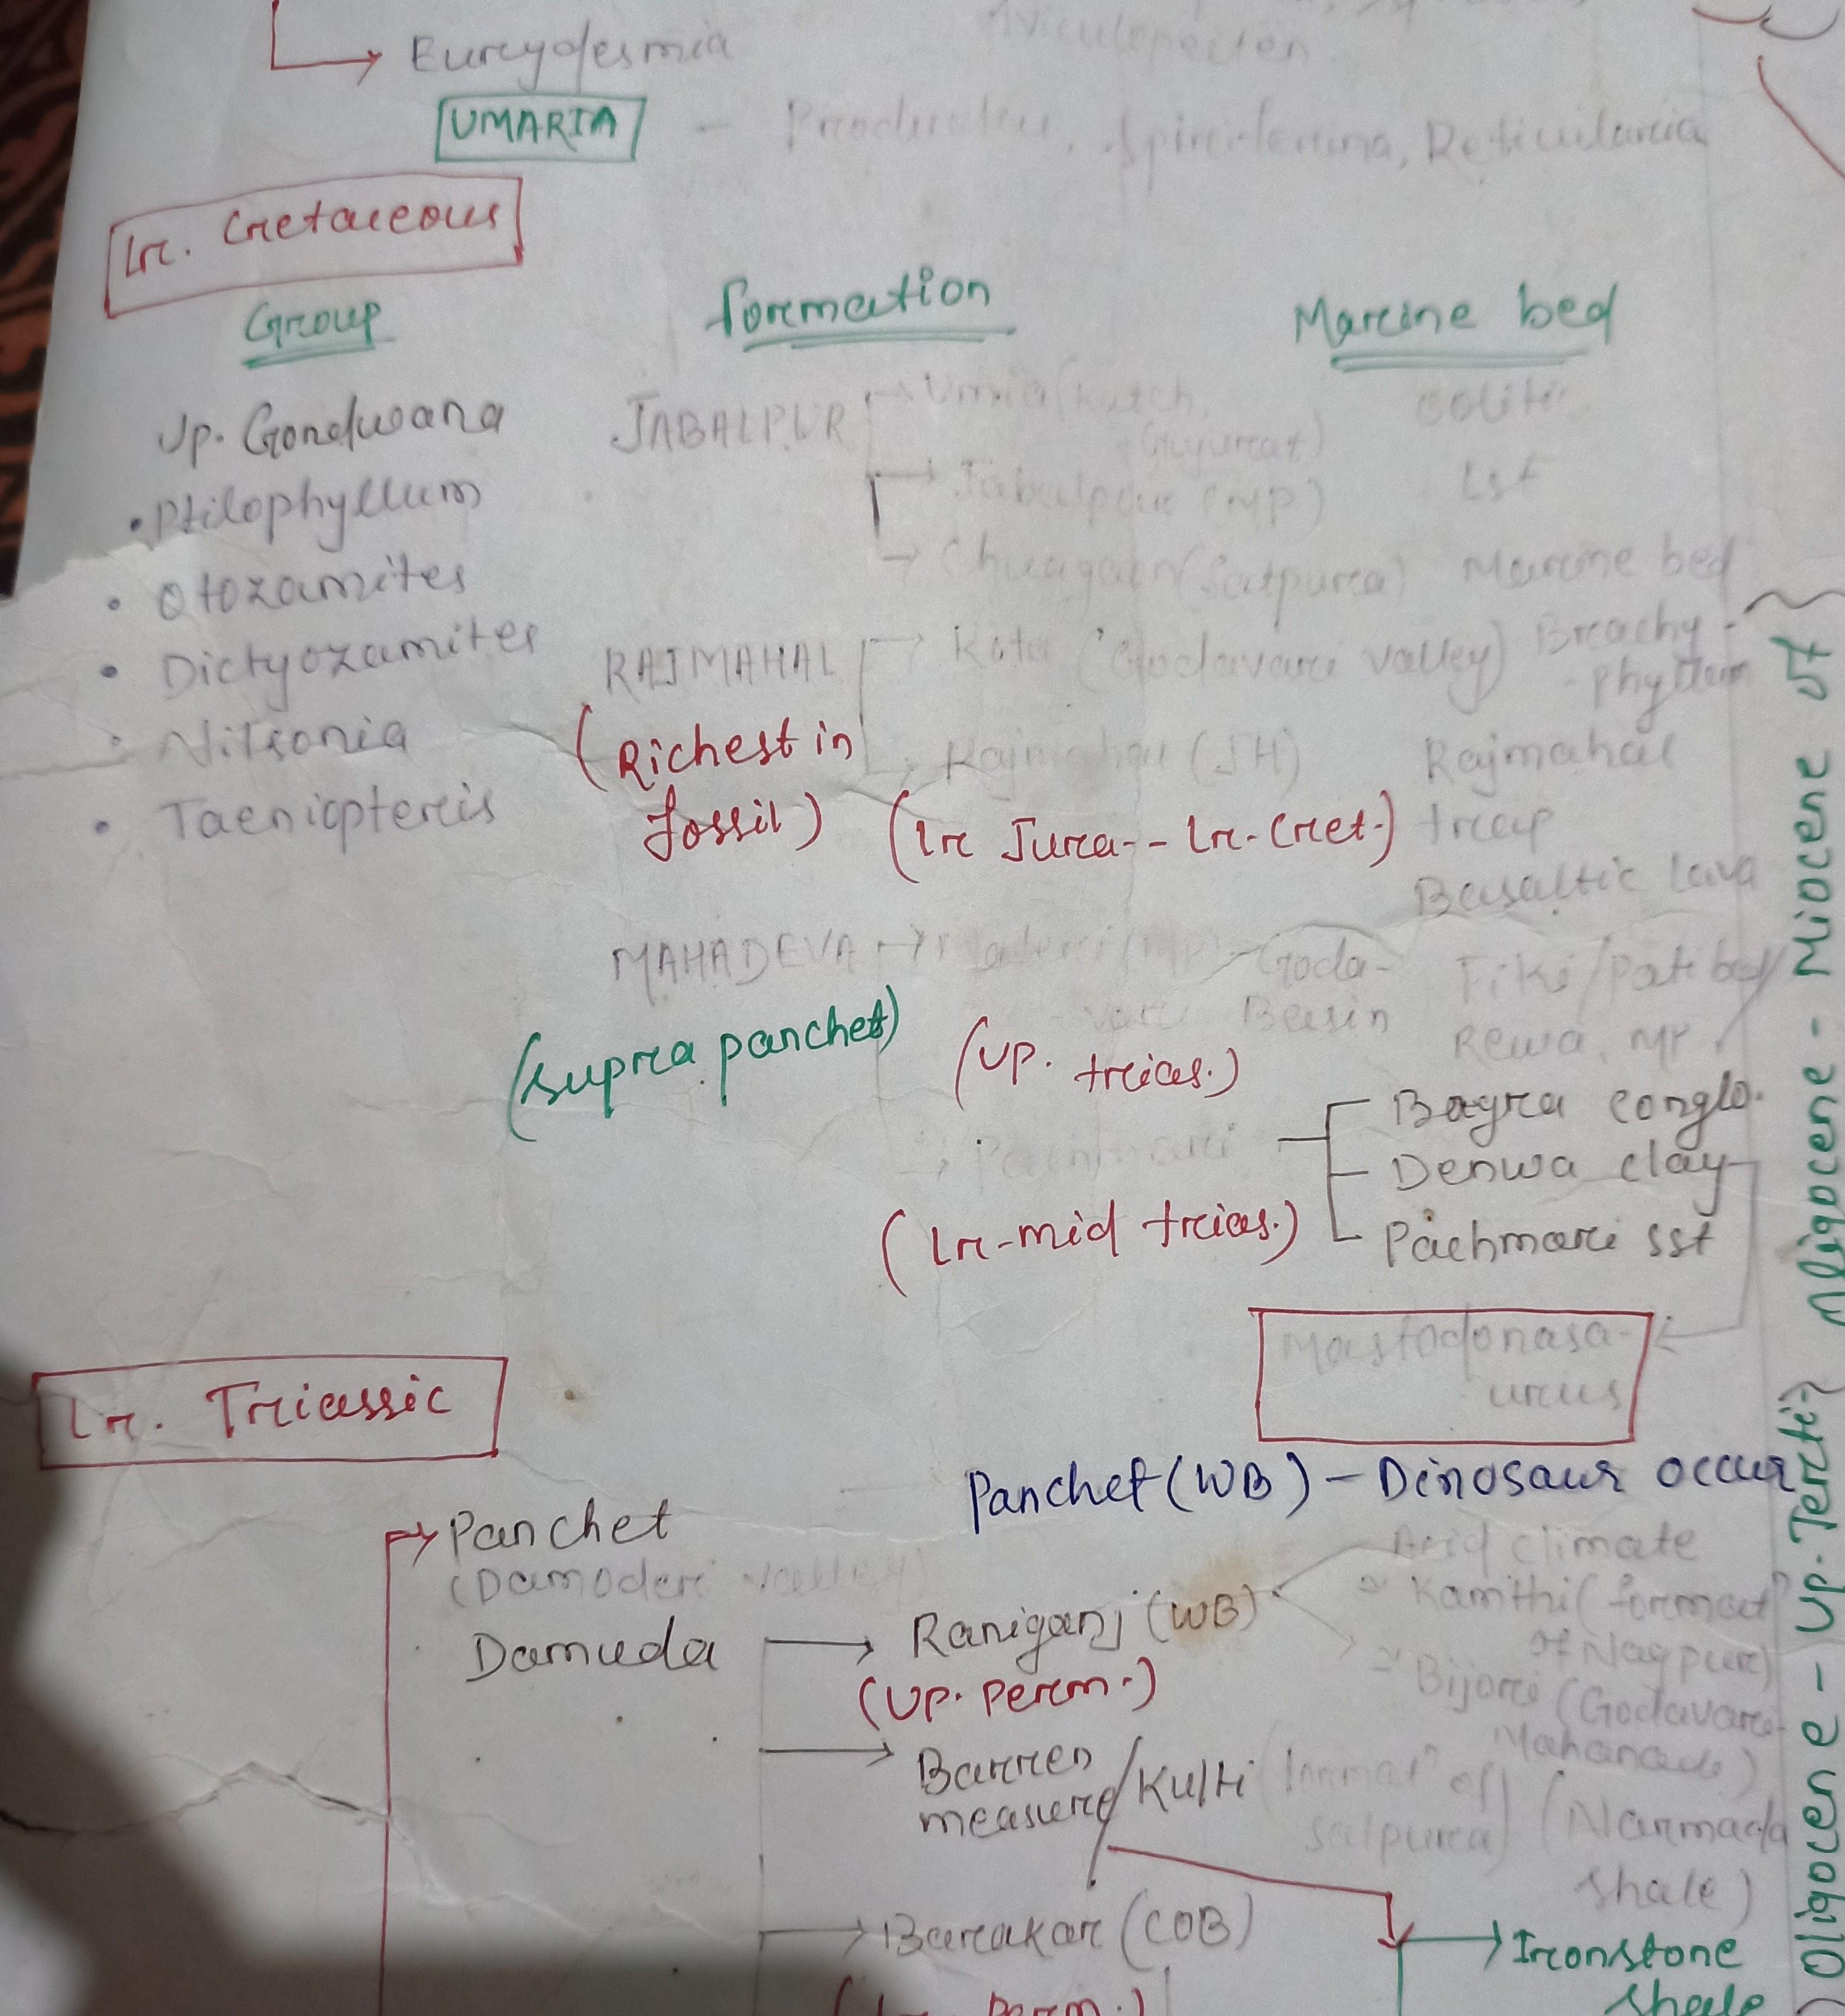 Eurydesmia
Aviculopecten
UMARIA - Productus, Spiriferina, Reticularia
Lr. Cretaceous
Group
Formation
Marine bed
Up. Gondwana
• Ptilophyllum
• Otozamites
• Dictyozamites
• Nilsonia
• Taeniopteris
JABALPUR
→ Umia (Kutch,
Gujurat)
→ Jabalpur (MP)
→ (Satpura)
Oolitic
Lst
Marine bed
RAJMAHAL
(Richest in
fossil)
→ Kota (Godavari valley)
→ Rajmahal (JH)
(Lr Jura-- Lr-Cret.)
Brachy-
-phyllum
Rajmahal
trap
Basaltic lava
MAHADEVA →
(supra panchet)
Goda-
-vari Basin
(Up. trias.)
Tiki/Pali bed
Rewa, MP
→ Pachmari
(Lr-mid trias.)
Bagra conglo.
Denwa clay
Pachmari sst
Mastodonasa-
urus
Lr. Triassic
Panchet (WB) - Dinosaur occur
→ Panchet
(Damoder valley)
Damuda
→ Raniganj (WB)
(Up. Perm.)
Acid climate
≃ Kamthi (format^n
of Nagpur)
≃ Bijori (Godavari-
Mahanadi)
→ Barren
measure/Kulti (format^n of
satpura) (Narmada
shale)
→ Barakar (COB)
(Lr. Perm.)
→ Ironstone
shale
Oligocene - Miocene
Oligocene - Up. Terti